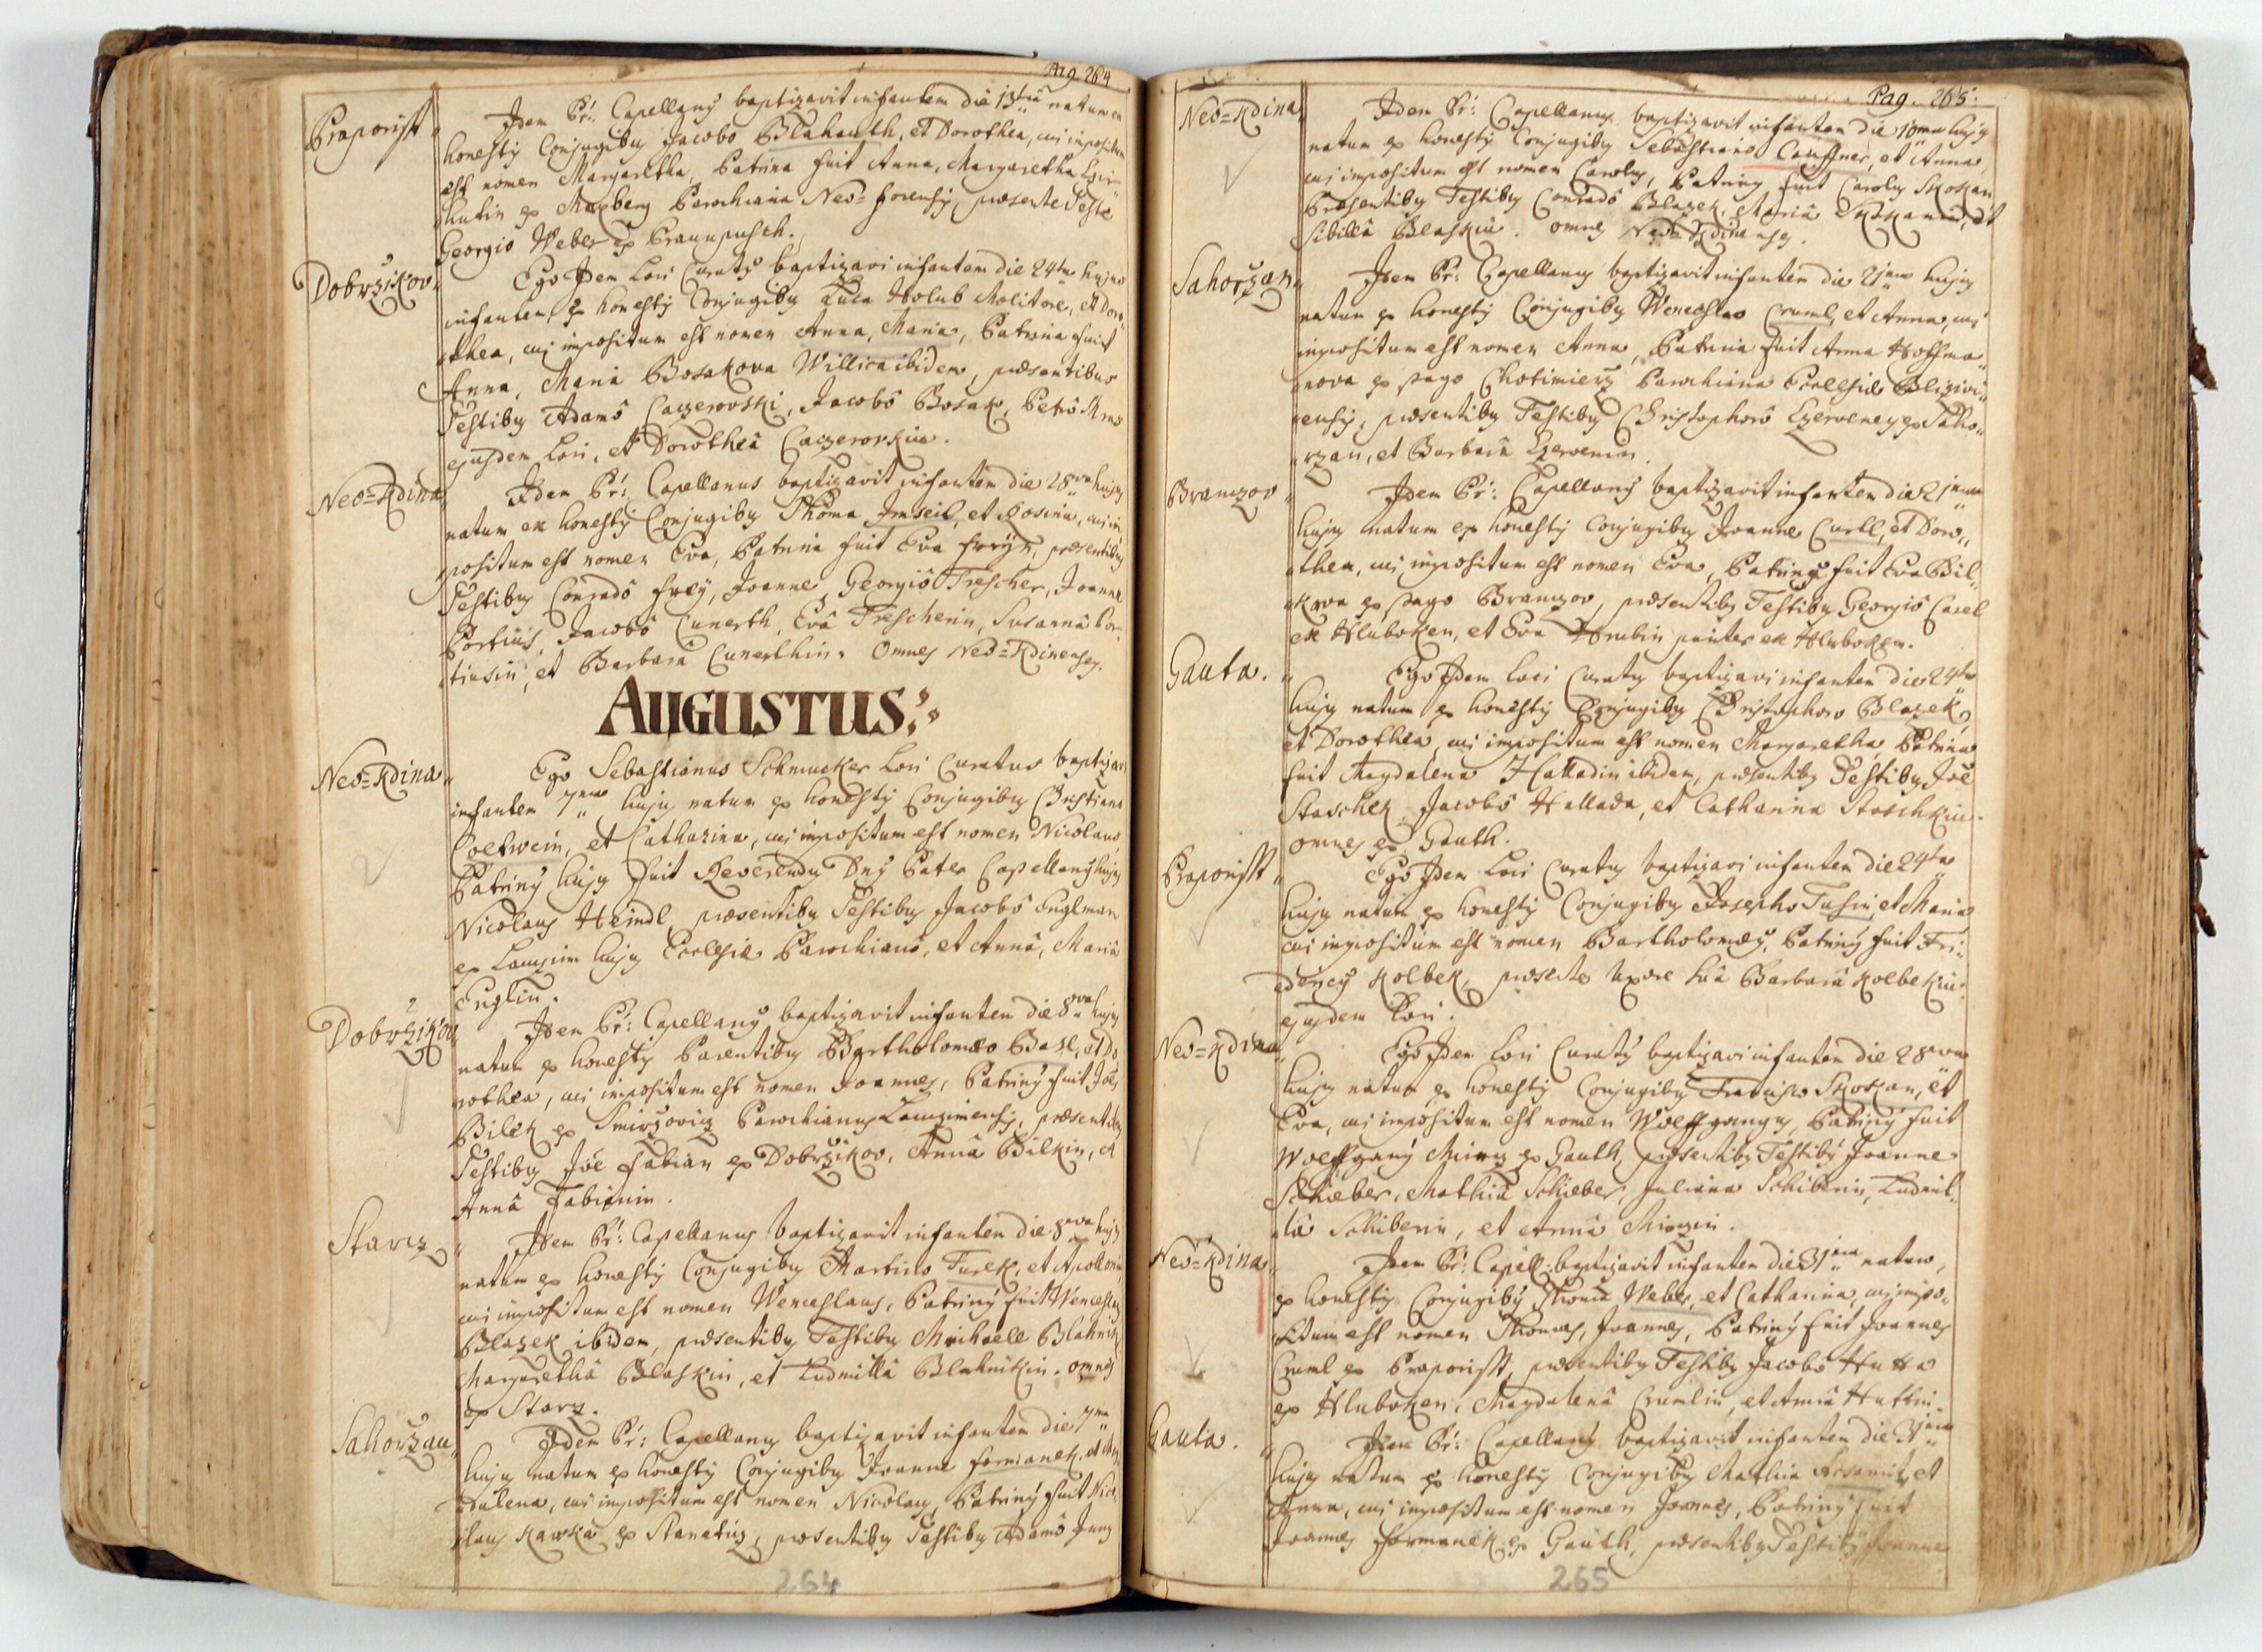 Pag. 264
Praporisst
Idem Pr: Capellany baptizavit infantem die 13tia natum ex
honesty Conjugiby Jacobo Blahauth, et Dorothea, cui impositum
est nomen Margaretha, Patrina fuit Anna, Margaretha
ex Maxberg Parochiana Neo=forensy, praesente Teste
Georgio Weber ex Braunpusch.
Dobrzikov
Ego Idem Loci Curaty baptizavi infantem die 24ta hujus
infantem, ex honesty Conjugiby Luca Holub Molitore, et Doro¬
thea, cui impositum est nomen Anna, Maria, Patrina fuit
Anna, Maria Bosakova Willica ibidem, praesentibus
Testiby Adamo Caczerovski, Jacobo Bosak, Petro
ejusdem Loci, et Dorothea Caczerovskin.
Neo=Kdina
Idem Pr: Capellanus baptizavit infantem die 28va hujy
natum ex honesty Conjugiby Thoma Imseil, et Rosina, cui im
positum est nomen Eva, Patrina fuit Eva Freyin, praesentiby
Testiby Conrado Frey, Joanne Georgio Trescher, Joanne
Portius, Jacobo Cunerth, Eva Trescherin, Susanna Por¬
tiusin, et Barbara Cunerthin. Omnes Neo=Kdinenses.
AUGUSTUS.
Neo=Kdina
Ego Sebastianus Schmucker Loci Curatus baptizavi
infantem 7ma hujy natum ex honesty Conjugiby Christiano
Coetwein, et Catharina, cui impositum est nomen Nicolaus,
Patriny hujy fuit Reverendy Dny Pater Capellany hujy
Nicolaus Heindl, praesentiby Testiby Jacobo Englman
ex Lauzim hujy Ecclesia Parochiano, et Anna, Maria
Englin.
2
Dobrzikov
Idem Pr: Capellany baptizavit infantem die 8va hujy
natum ex honesty Parentiby Bartholomeo Base, et Do
rothea, cui impositum est nomen Joannes, Patriny fuit Joes
Bilek ex Smirzovicz Parochiany Lauzimensis, praesentiby
Testiby Joe Fabian ex Dobrzikov, Anna Bilkin, et
Anna Fabianin.
Starcz
Idem Pr: Capellanus baptizavit infantem die 8va hujy
natum ex honesty Conjugiby Martino Turek, et Apollonia
cui impositum est nomen Wenceslaus, Patriny fuit Wenceslaus
Blazek ibidem, praesentiby Testiby Michaele Blahnik
Margaretha Blaskin, et Ludmilla Blahnikin. omnes
ex Starz.
Sahorzan
Idem Pr: Capellany baptizavit infantem die 7ma
hujy natum ex honesty Conjugiby Joanne Formanek, et Mag
dalena, cui impositum est nomen Nicolaus, Patriny fuit Nico
laus Kawka ex Stanatiz, praesentiby Testiby Adamo Jung
264
Pag. 265.
Neo=Kdina
Idem Pr: Capellanus baptizavit infantem die 10ma hujy
natum ex honesty Conjugiby Sebastiano Cauffner, et Anna,
cui impositum est nomen Caroly, Patriny fuit Caroly Skokan,
Praesentiby Testiby Conrado Blazek, Maria Skokanin, et
Sibilla Blaskin. omnes Neo=Kdinenses.
Sahorzan
Idem Pr: Capellany baptizavit infantem die 21ma hujy
natum ex honesty Conjugiby Wenceslao Cruml, et Anna, cui
impositum est nomen Anna, Patrina fuit Anna Hoffma
nova ex pago Chotimierz Parochiana Ecclesia Blizivi¬
ensis, praesentiby Testiby Christophoro Czerveney ex Saho¬
rzan, et Barbara Czervenin.
Bramzov
Idem Pr: Capellany baptizavit infantem die 21ma
hujy natum ex honesty Conjugiby Joanne Carll, et Doro¬
thea, cui impositum est nomen Eva, Patriny fuit Eva Bil¬
kova ex pago Bramzov, praesentiby Testiby Georgio Carel
ex Hluboken, et Eva Hrubin pariter ex Hluboken.
Gauta.
Ego Idem Loci Curaty baptizavi infantem die 24ta
hujy natum ex honesty Conjugiby Christophoro Blazek,
et Dorothea, cui impositum est nomen Margaretha, Patrina
fuit Magdalena Halladin ibidem, praesentiby Testiby Joe
Staschek, Jacobo Hallada, et Catharina Staschkin.
omnes ex Gauth.
Praporisst
Ego Idem Loci Curaty baptizavi infantem die 24ta
hujy natum ex honesty Conjugiby Josepho Tusin, et Maria
cui impositum est nomen Bartholomaey, Patriny fuit Fri¬
dericy Kolbek, praesente Uxore sua Barbara Kolbekin
ejusdem Loci.
Neo=Kdina
Ego Idem Loci Curaty baptizavi infantem die 28va
hujy natum ex honesty Conjugiby Francisco Skokan, et
Eva, cui impositum est nomen Wolffgangy, Patriny fuit
Wolffgang Mircz ex Gauth, praesentiby Testiby Joanne
Schieber, Mathia Schieber, Juliana Schiberin, Ludmil¬
la Schiberin, et Anna Mirzin.
Neo=Kdina
Idem Pr: Capell: baptizavit infantem die 31ma natum,
ex honesty Conjugiby Thoma Weber, et Catharina, cui impo¬
situm est nomen Thomas, Joannes, Patriny fuit Joannes
Cruml ex Praporisst, praesentiby Testiby Jacobo Hutta
ex Hluboken, Magdalena Crumlin, et Anna Huttin.
Gauta.
Idem Pr: Capellany baptizavit infantem die 31ma
hujy natum ex honesty Conjugiby Mathia et
Anna, cui impositum est nomen Joannes, Patriny fuit
Joannes Formanek ex Gauth, praesentiby Testiby Joanne
265